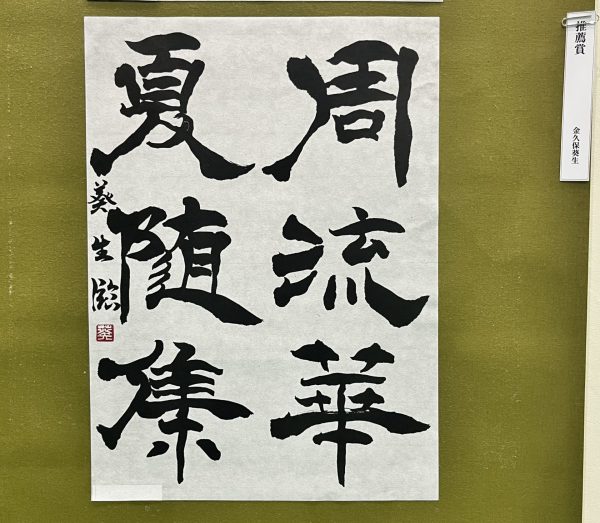 周流華
夏随集
葵生臨
葵
推薦賞
金久保葵生